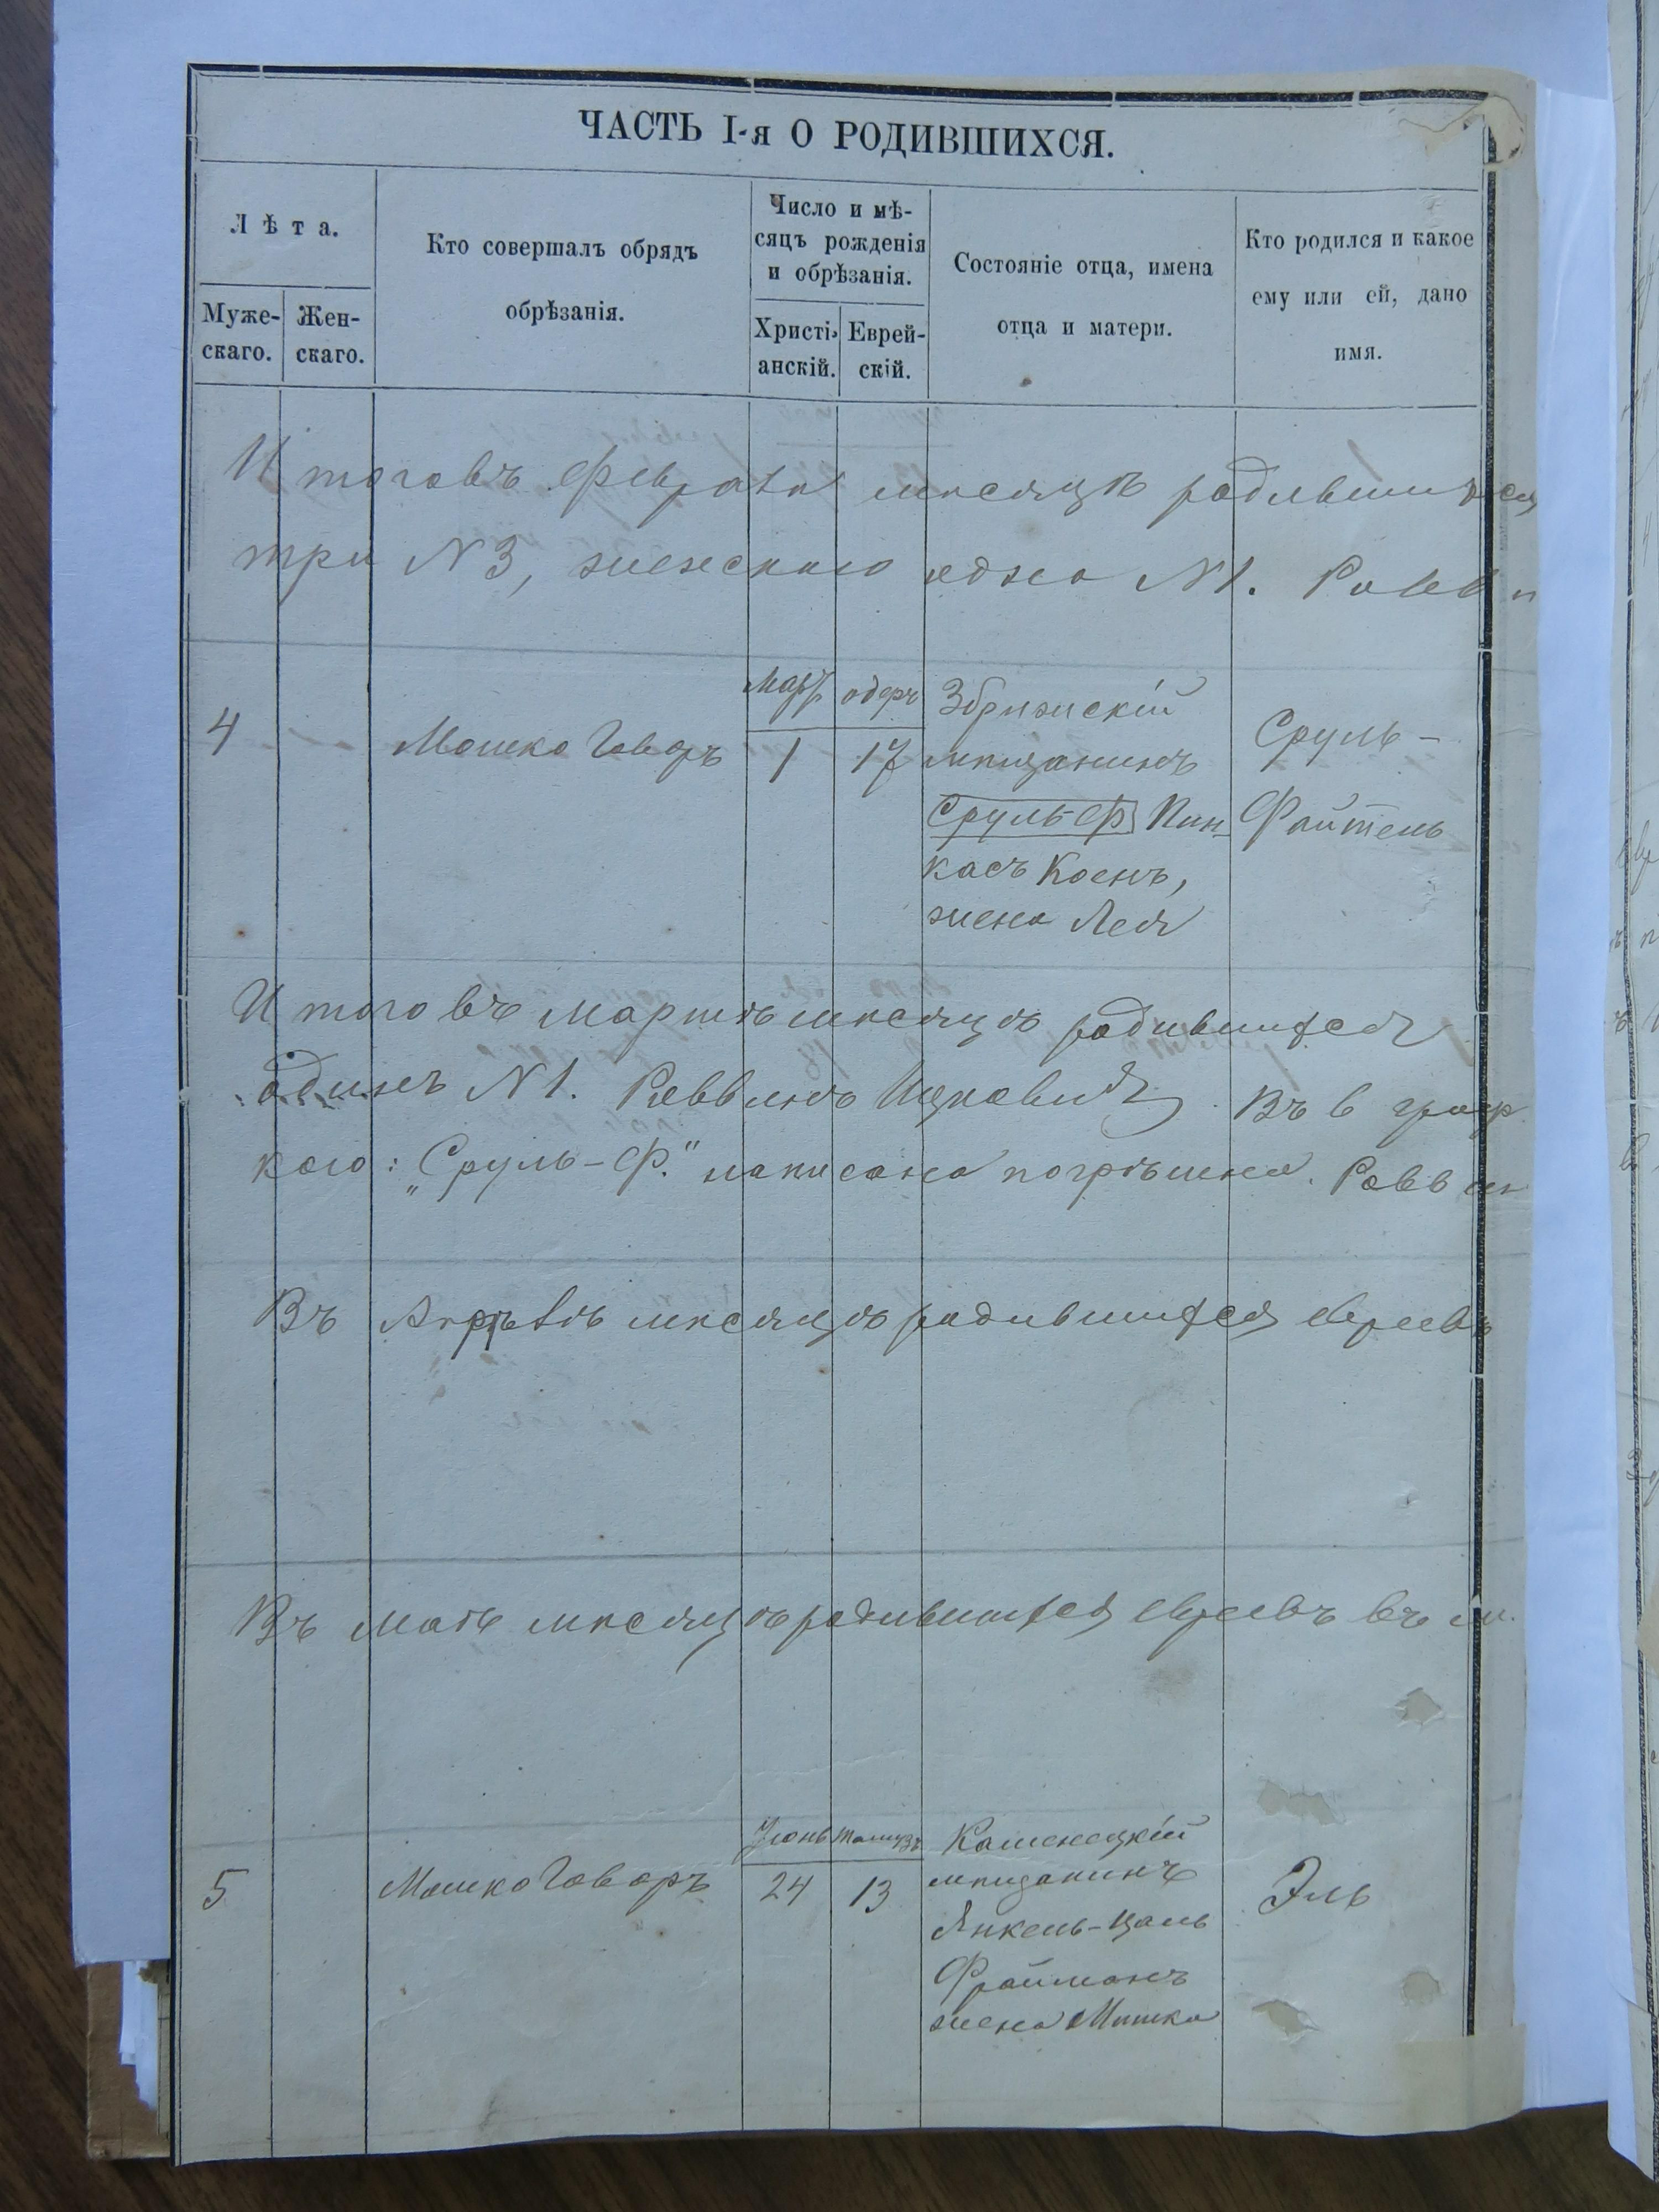 ЧАСТЬ I-я О РОДИВШИХСЯ.
Лѣта.
Муже-
скаго.
Жен-
скаго.
Кто совершалъ обрядъ
обрѣзанія.
Число и мѣ-
сяцъ рожденія
и обрѣзанія.
Христі-
анскій.
Еврей-
скій.
Состояніе отца, имена
отца и матери.
Кто родился и какое
ему или ей, дано
имя.
Итого въ Февралѣ мѣсяцѣ родившихся
три N 3, женскаго одна N 1. Равви
4
Мошко Говоръ
Мартъ
1
адаръ
17
Збрижскій
мѣщанинъ
Сруль-Ф Пин-
касъ Коенъ,
жена Лея
Сруль-
Файтель
Итого въ Мартѣ мѣсяцѣ родившихся
одинъ N 1. Раввинъ Ицковичъ. Въ в граф
кого: „Сруль-Ф." написано погрѣшно. Раввин
Въ Апрѣлѣ мѣсяцѣ родившихся евреевъ
Въ маѣ мѣсяцѣ родившихся евреевъ въ м.
5
Мошко Говоръ
Іюнь
24
тамузъ
13
Каменецкій
мѣщанинъ
Янкель-Цаль
Фрайманъ
жена Минка
Эль